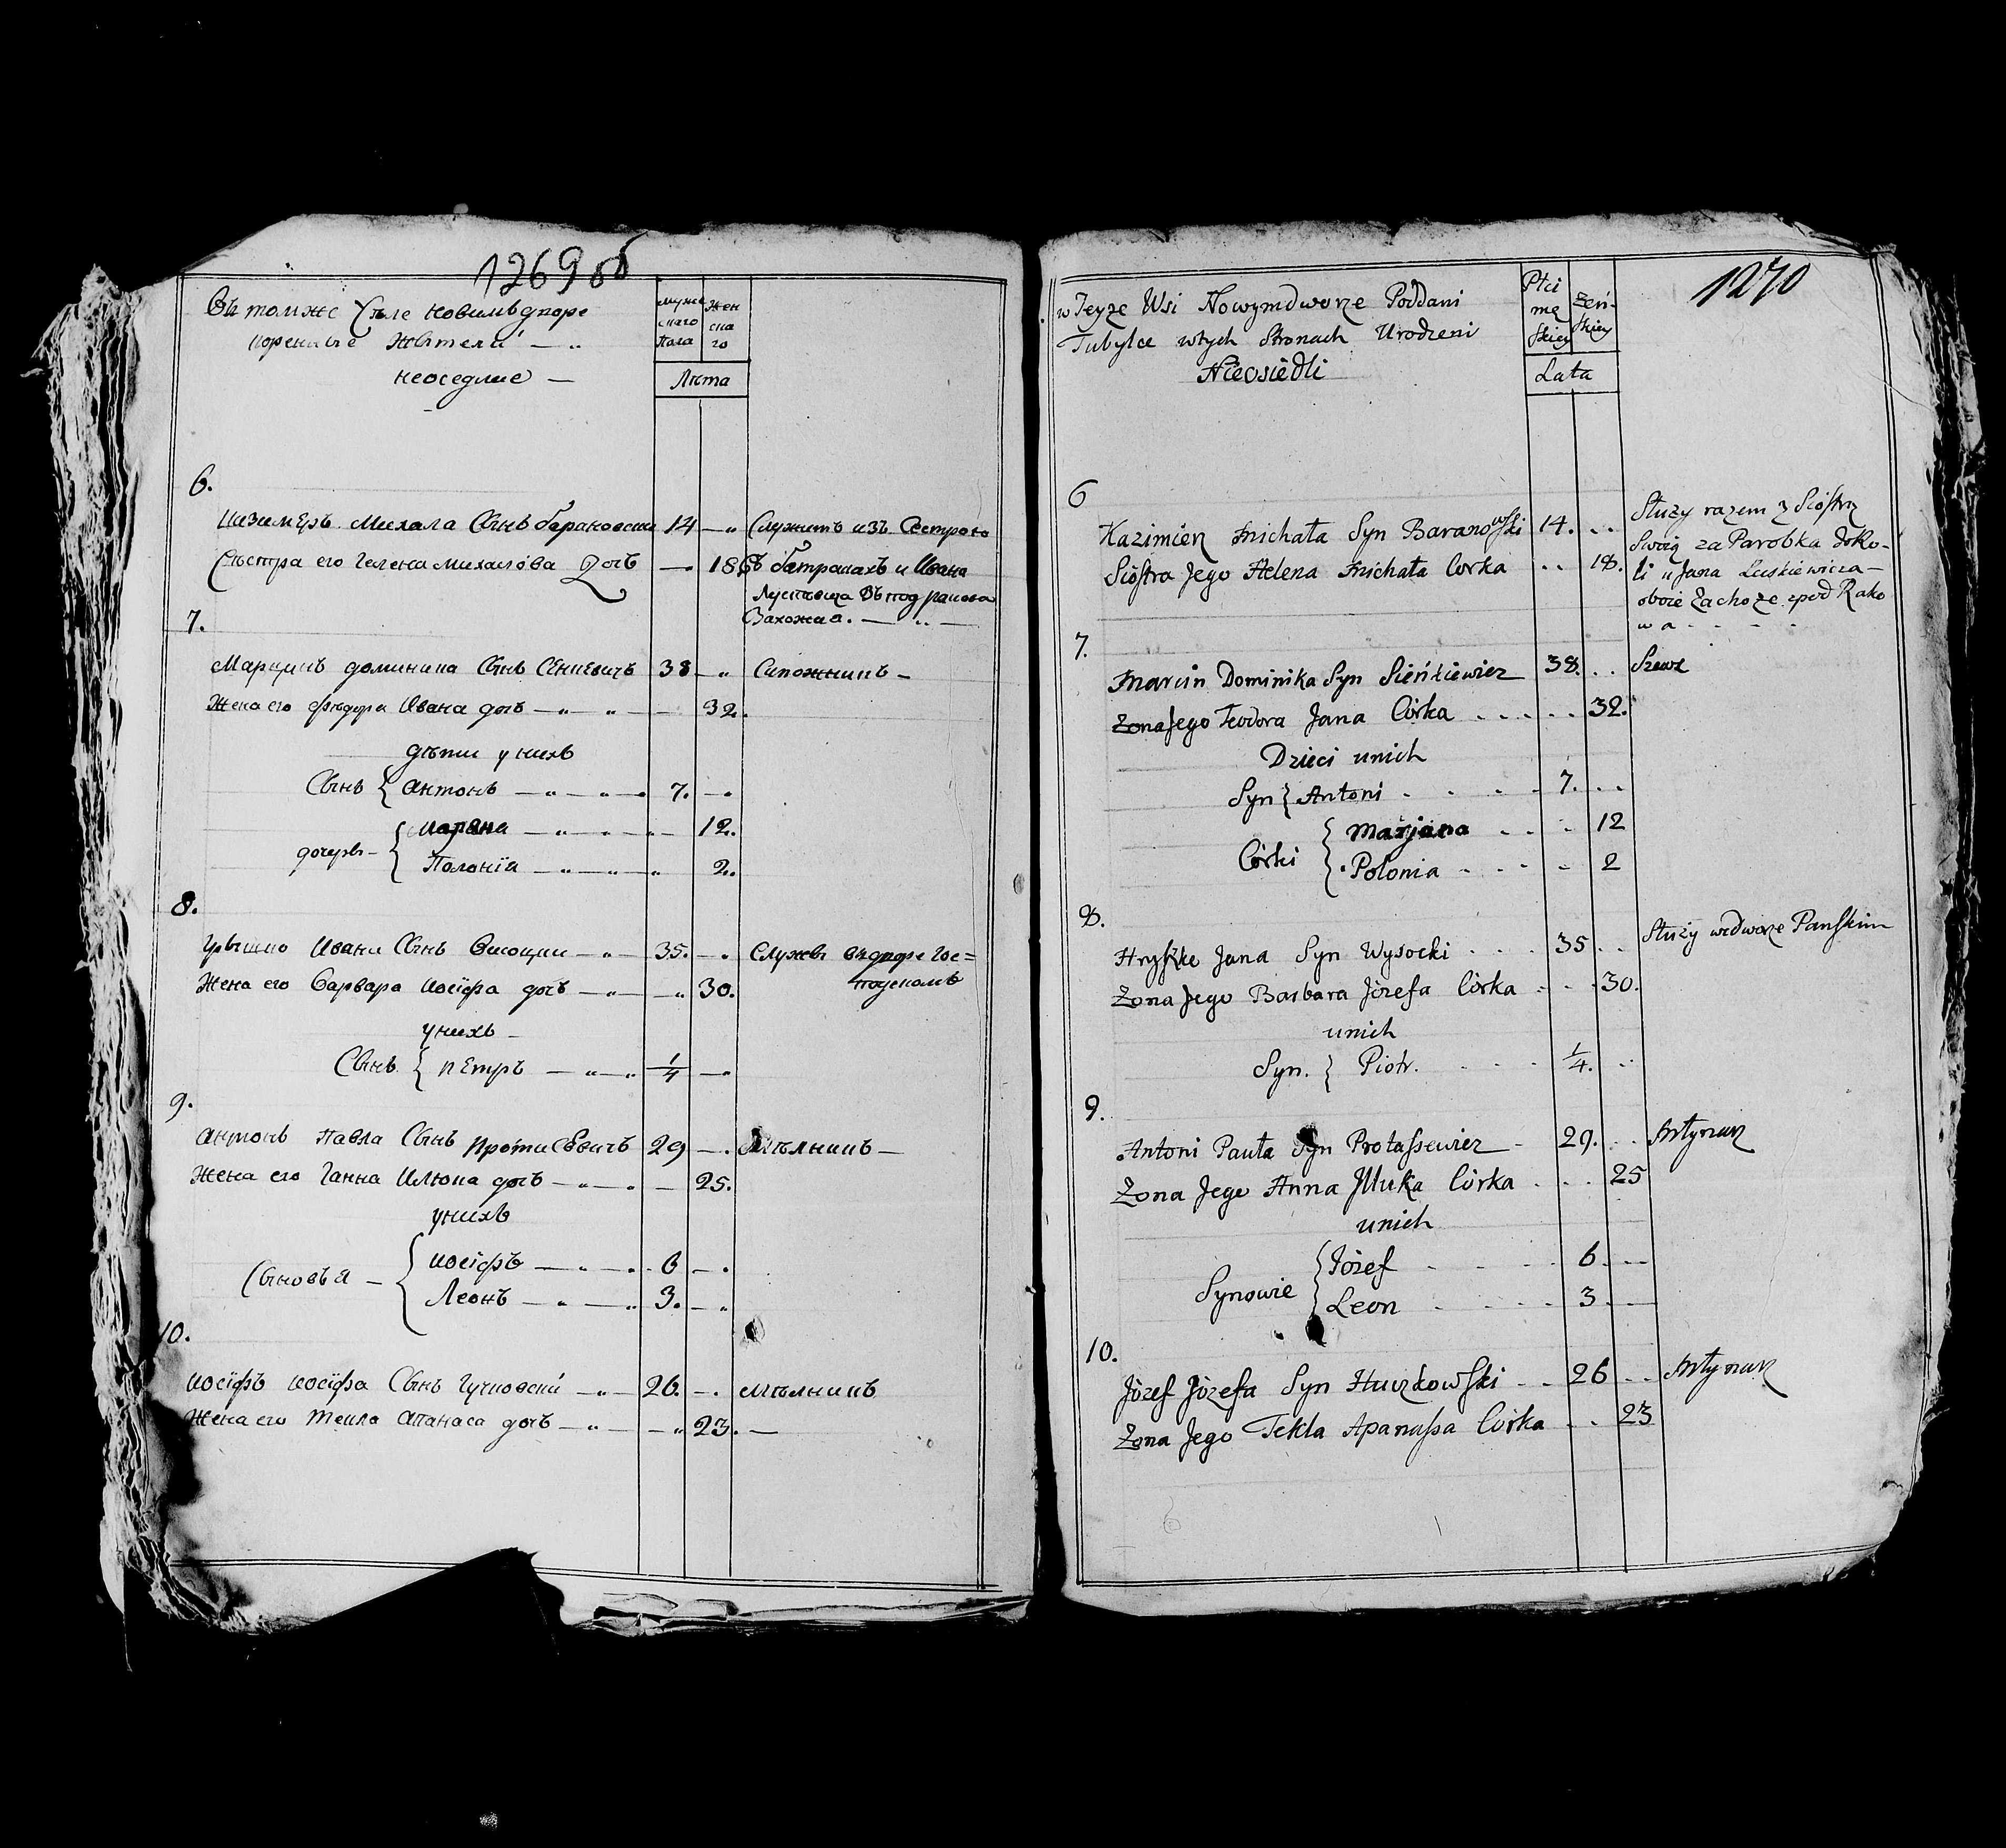 1269об
Въ томже Селе новимъ дворе
коренные Жытели
неоседлые —
мужескаго Пола
Женскаго
Лѣта
6.
Казимеръ Михала Сынъ барановски 14 — „ Служитъ изъ Сестрою
Сѣстра его Гелена михалова Дочъ — 18. в батракахъ у Ивана
въ под ракова
Захожиа. — „ —
7.
Марцинъ доминика Сынъ СЕнкевичъ 38 — „ Сапожникъ —
Жена его Ѳѣдора Ивана дочъ — „ — „ — 32.
дѣти у нихъ
Сынъ { антонъ — „ — „ — 7. — „
дочеры — { Марʼяна — „ — „ — 12.
Полонїа — „ — „ — „ 2.
8.
Грышко Ивана Сынъ Висоцки — „ — 35. — „ Служы въ дворе Гос=
подскомъ
Жена его Варвара иосїфа дочъ — „ — — „ 30.
у нихъ —
Сынъ { пЕтръ — „ — „ 1/4 — „
9.
антонъ Павла Сынъ протасЕвичъ 29 — . мѣлникъ —
Жена его Ганна Илюка дочъ — „ — „ — 25.
у нихъ
Сыновъя — { иосїфъ — „ — „ 6 — .
Леонъ — „ — „ 3. — „
10.
иосїфъ иосїфа Сынъ Гучковски — „ — 26. — . мѣлникъ
Жена его текла апанаса дочъ — „ — — „ 23. —
1270
w Teyże Wsi Nowymdworze Poddani
Tubylce w tych Stronach Urodzeni
Nieosiedli
Płci męskiey
żeńskiey
Lata
6
Kazimierz Michała Syn Baranowski 14. . . Służy razem z Siostrą
Siostra Jego Helena Michała Corka . . 18. Swoią za Parobka
u Jana Luskiewicza —
oboie Zachoże zpod Rako
wa
7.
Marcin Dominika Syn Sieńkiewicz 38. . . Szewc
Zona Jego Teodora Jana Córka . . . . . 32.
Dzieci unich
Syn { Antoni . . . . 7. . .
Córki { Marjana . . . 12
Polonia . . . - 2
8.
Hryszko Jana Syn Wysocki . . . 35 . . Służy wedworze Panskim
Zona Jego Barbara Józefa Córka . . . 30.
unich
Syn. { Piotr. . . . 1/4. . .
9.
Antoni Pauła Syn Protassewicz - 29. . . Młynarz
Zona Jego Anna Illuka Córka . . . 25
unich
Synowie { Józef . . . . 6 . - -
Leon . . . . 3 . - -
10.
Józef Józefa Syn Huczkowski - . . 26 . . Młynarz
Zona Jego Tekla Apanassa Córka . . . 23